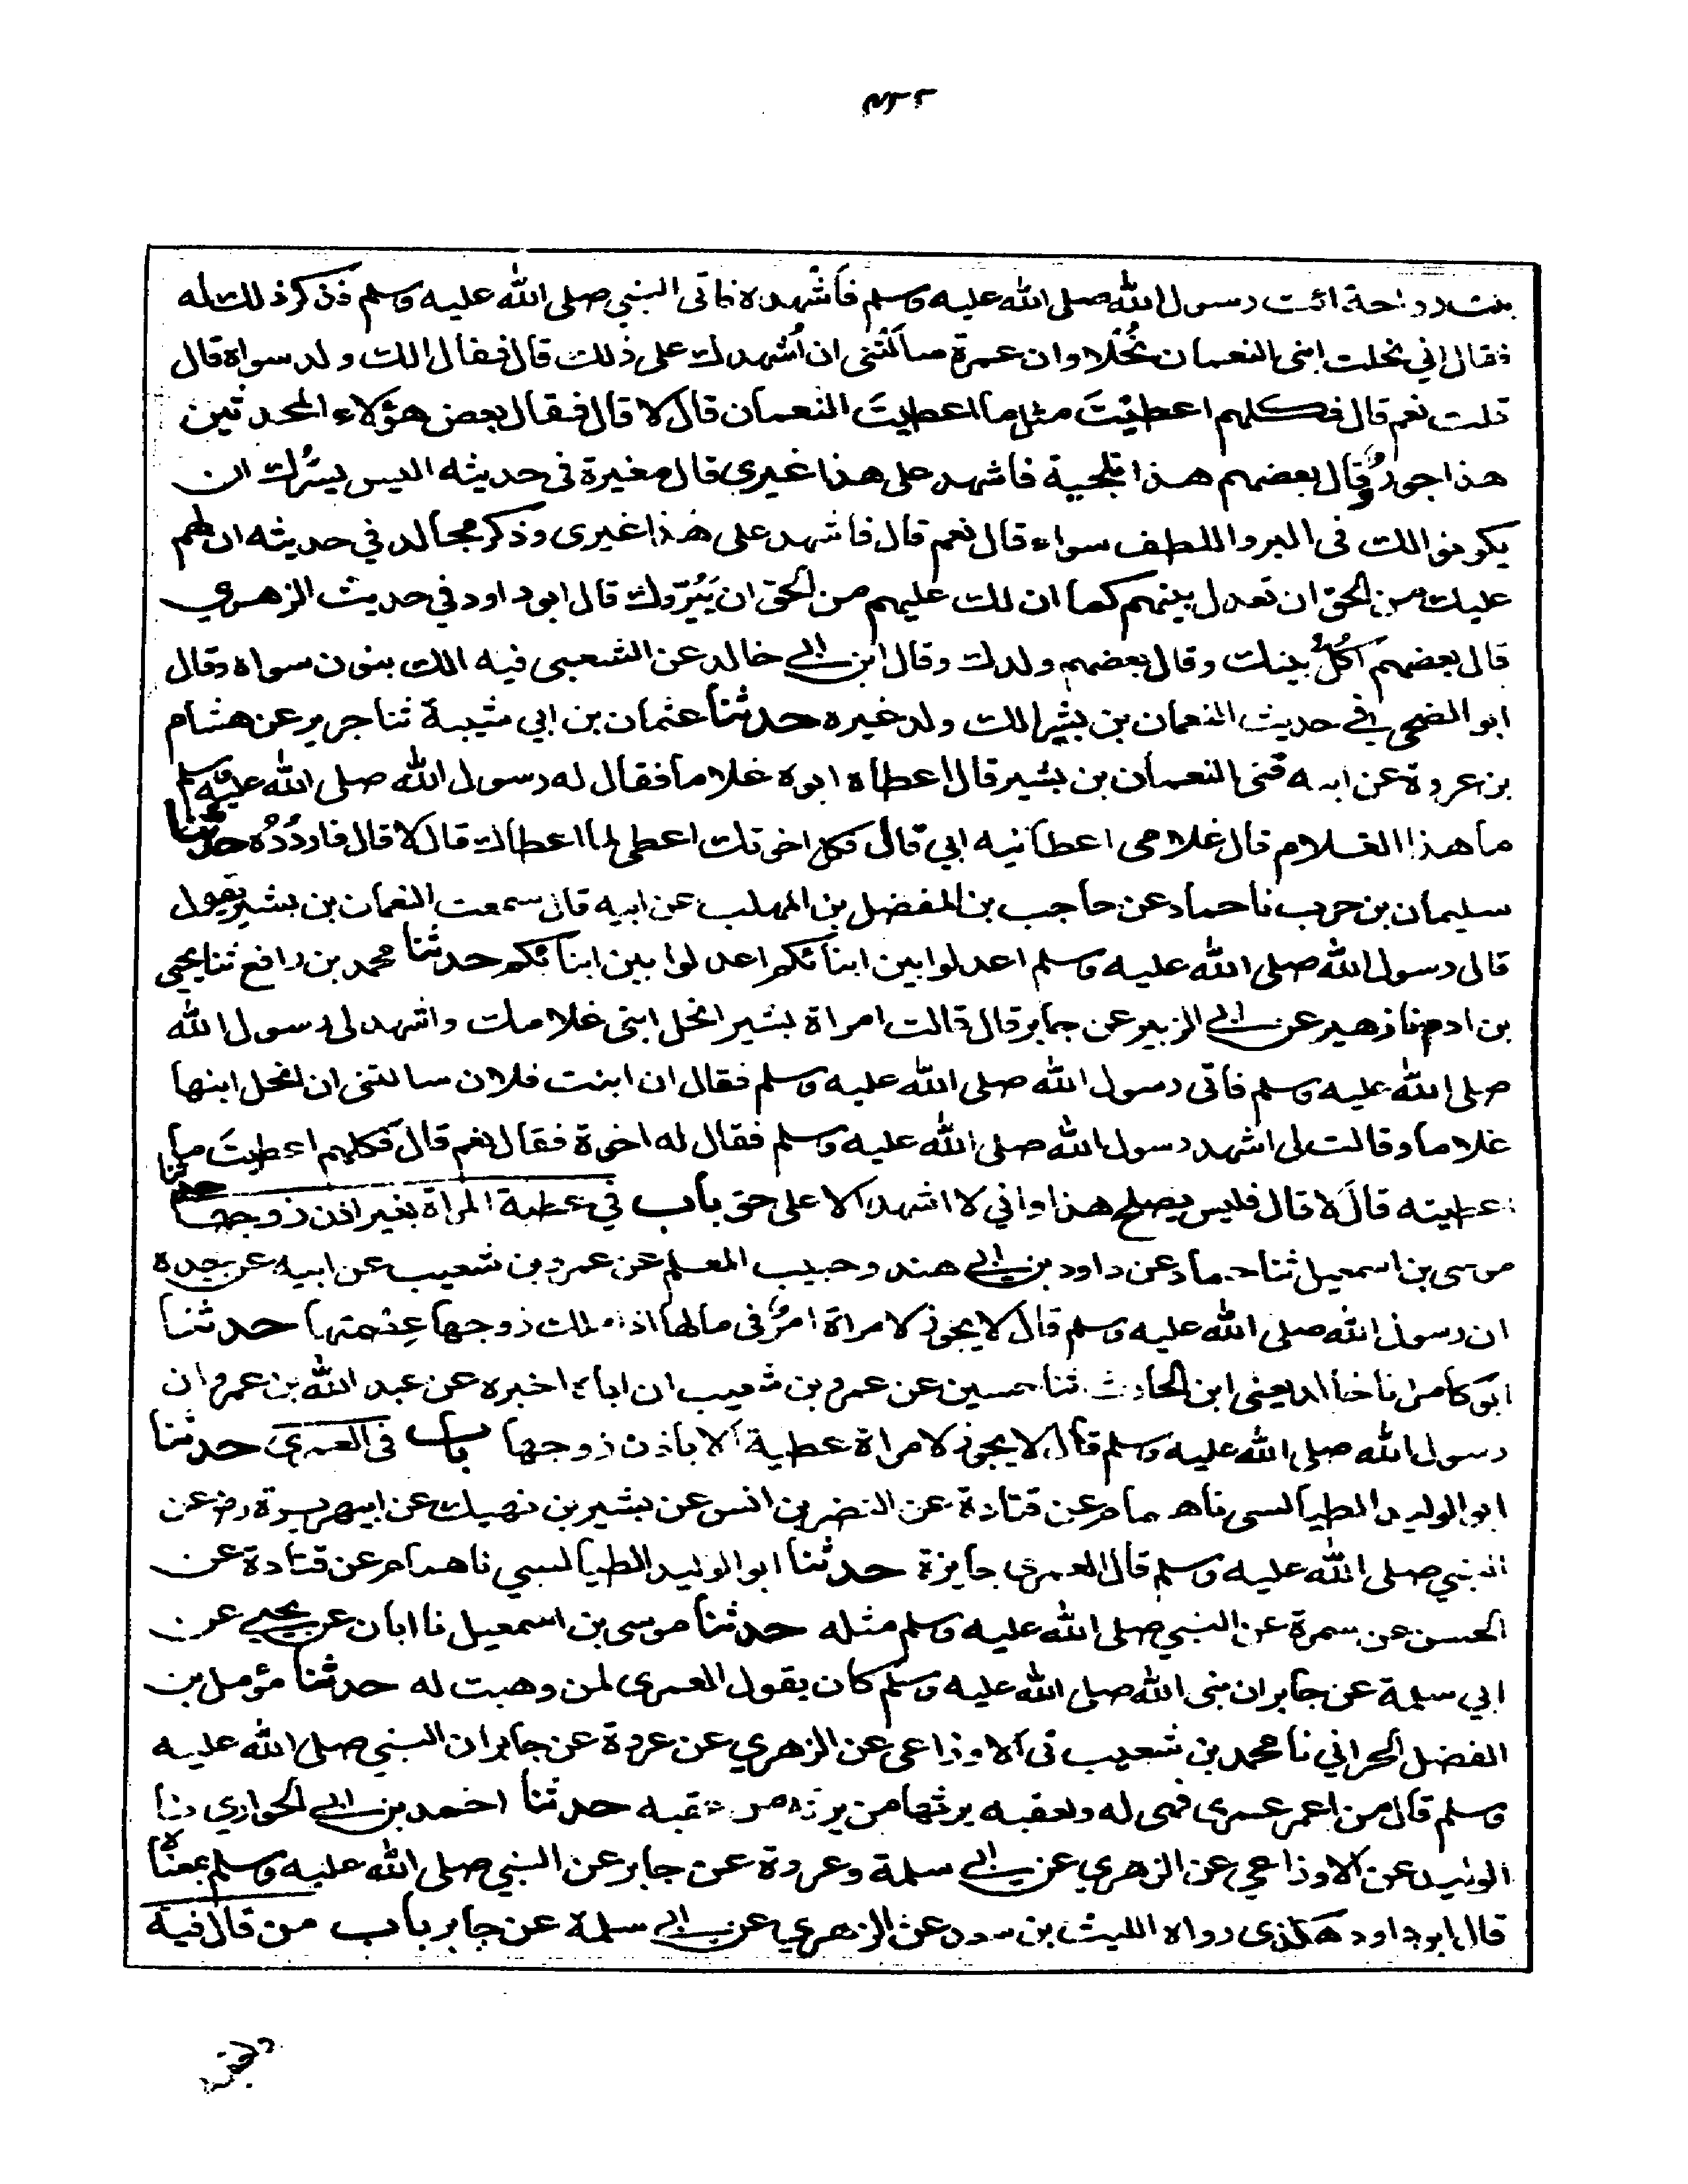 بنت رواحة ائت رسول الله صلى الله عليه وسلم فأشهده فاتى النبي صلى الله عليه وسلم فذكر ذلك له
فقال اني نحلت ابنى النعمان نُحْلا وان عمرة سألَتْنى ان أُشهدك على ذلك قال فقال الك ولد سواه قال
قلت نعم قال فكلهم اعطيْتَ مثل ما اعطيتَ النعمان قال لا قال فقال بعض هؤلاء المحدثين
هذا جورٌ وقال بعضهم هذا تلجية فاشهد على هذا غيري قال مغيرة في حديثه اليس يسُرُّك ان
يكونوا لك في البر واللطف سواء قال نعم قال فاشهد على هذا غيرى وذكر مجالد في حديثه ان لهم
عليك من الحق ان تعدل بينهم كما ان لك عليهم من الحق ان يَبَرُّوك قال ابو داود في حديث الزهري
قال بعضهم أكُلَّ بنيك وقال بعضهم ولدك وقال ابن ابي خالد عن الشعبى فيه الك بنون سواه وقال
ابو الضحى في حديث النعمان بن بشير الك ولد غيره حدثنا عثمان بن ابي شيبة ثنا جرير عن هشام
بن عروة عن ابيه ثنى النعمان بن بشير قال اعطاه ابوه غلاما فقال له رسول الله صلى الله عليه وسلم
ما هذا الغلام قال غلامى اعطانيه ابي قال فكل اخوتك اعطى لما اعطاك قال لا قال فاردُدْه حدثنا
سليمان بن حرب نا حماد عن حاجب بن المفضل بن المهلب عن ابيه قال سمعت النعمان بن بشير يقول
قال رسول الله صلى الله عليه وسلم اعدلوا بين ابنائكم اعدلوا بين ابنائكم حدثنا محمد بن رافع ثنا يحيى
بن ادم نا زهير عن ابي الزبير عن جابر قال قالت امراة بشير انحل ابنى غلامك واشهد لى رسول الله
صلى الله عليه وسلم فاتى رسول الله صلى الله عليه وسلم فقال ان ابنت فلان سالتنى ان انحل ابنها
غلاما وقالت لى اشهد رسول الله صلى الله عليه وسلم فقال له اخوة فقال نعم قال فكلهم اعطيتَ ما
اعطيته قال لا قال فليس يصلح هذا وانى لا اشهد الا على حق باب في عطية المراة بغير اذن زوجها حدثنا
موسى بن اسمعيل ثنا حماد عن داود بن ابي هند وحبيب المعلم عن عمرو بن شعيب عن ابيه عن جده
ان رسول الله صلى الله عليه وسلم قال لا يجوز لامراة امرٌ فى مالها اذا ملك زوجها عِصْمتها حدثنا
ابو كامل نا خالد يعنى ابن الحارث ثنا حسين عن عمرو بن شعيب ان اباه اخبره عن عبد الله بن عمرو ان
رسول الله صلى الله عليه وسلم قال لا يجوز لامراة عطية الا باذن زوجها باب فى العمرى حدثنا
ابو الوليد الطيالسى نا همام عن قتادة عن النضر بن انس عن بشير بن نهيك عن ابيهريرة رض عن
النبي صلى الله عليه وسلم قال العمرى جايزة حدثنا ابو الوليد الطيالسي نا همام عن قتادة عن
الحسن عن سمرة عن النبي صلى الله عليه وسلم مثله حدثنا موسى بن اسمعيل نا ابان عن يحيى عن
ابي سلمة عن جابر ان نبى الله صلى الله عليه وسلم كان يقول العمرى لمن وهبت له حدثنا مؤمل بن
الفضل الحراني نا محمد بن شعيب نى الاوزاعى عن الزهري عن عروة عن جابر ان النبي صلى الله عليه
وسلم قال من اعمر عمرى فهى له ولعقبه يرثها من يرثه من عقبه حدثنا احمد بن ابي الحواري ثنا
الوليد عن الاوزاعي عن الزهري عن ابي سلمة وعروة عن جابر عن النبي صلى الله عليه وسلم بمعناه
قال ابو داود هكذى رواه الليث بن سعد عن الزهري عن ابي سلمة عن جابر باب من قال فيه